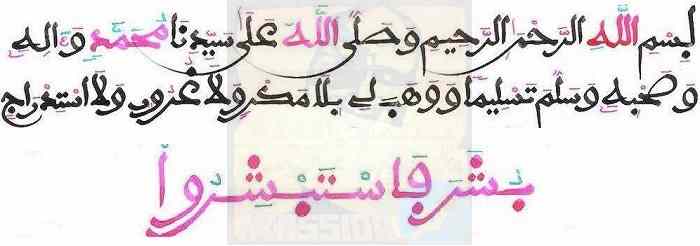 بسم الله الرحمن الرحيم وصلى الله على سيدنا محمد واله
وصحبه وسلم تسليما ووهب لي بلا مكر ولا غرور ولا استدراج
بشر فاستبشروا